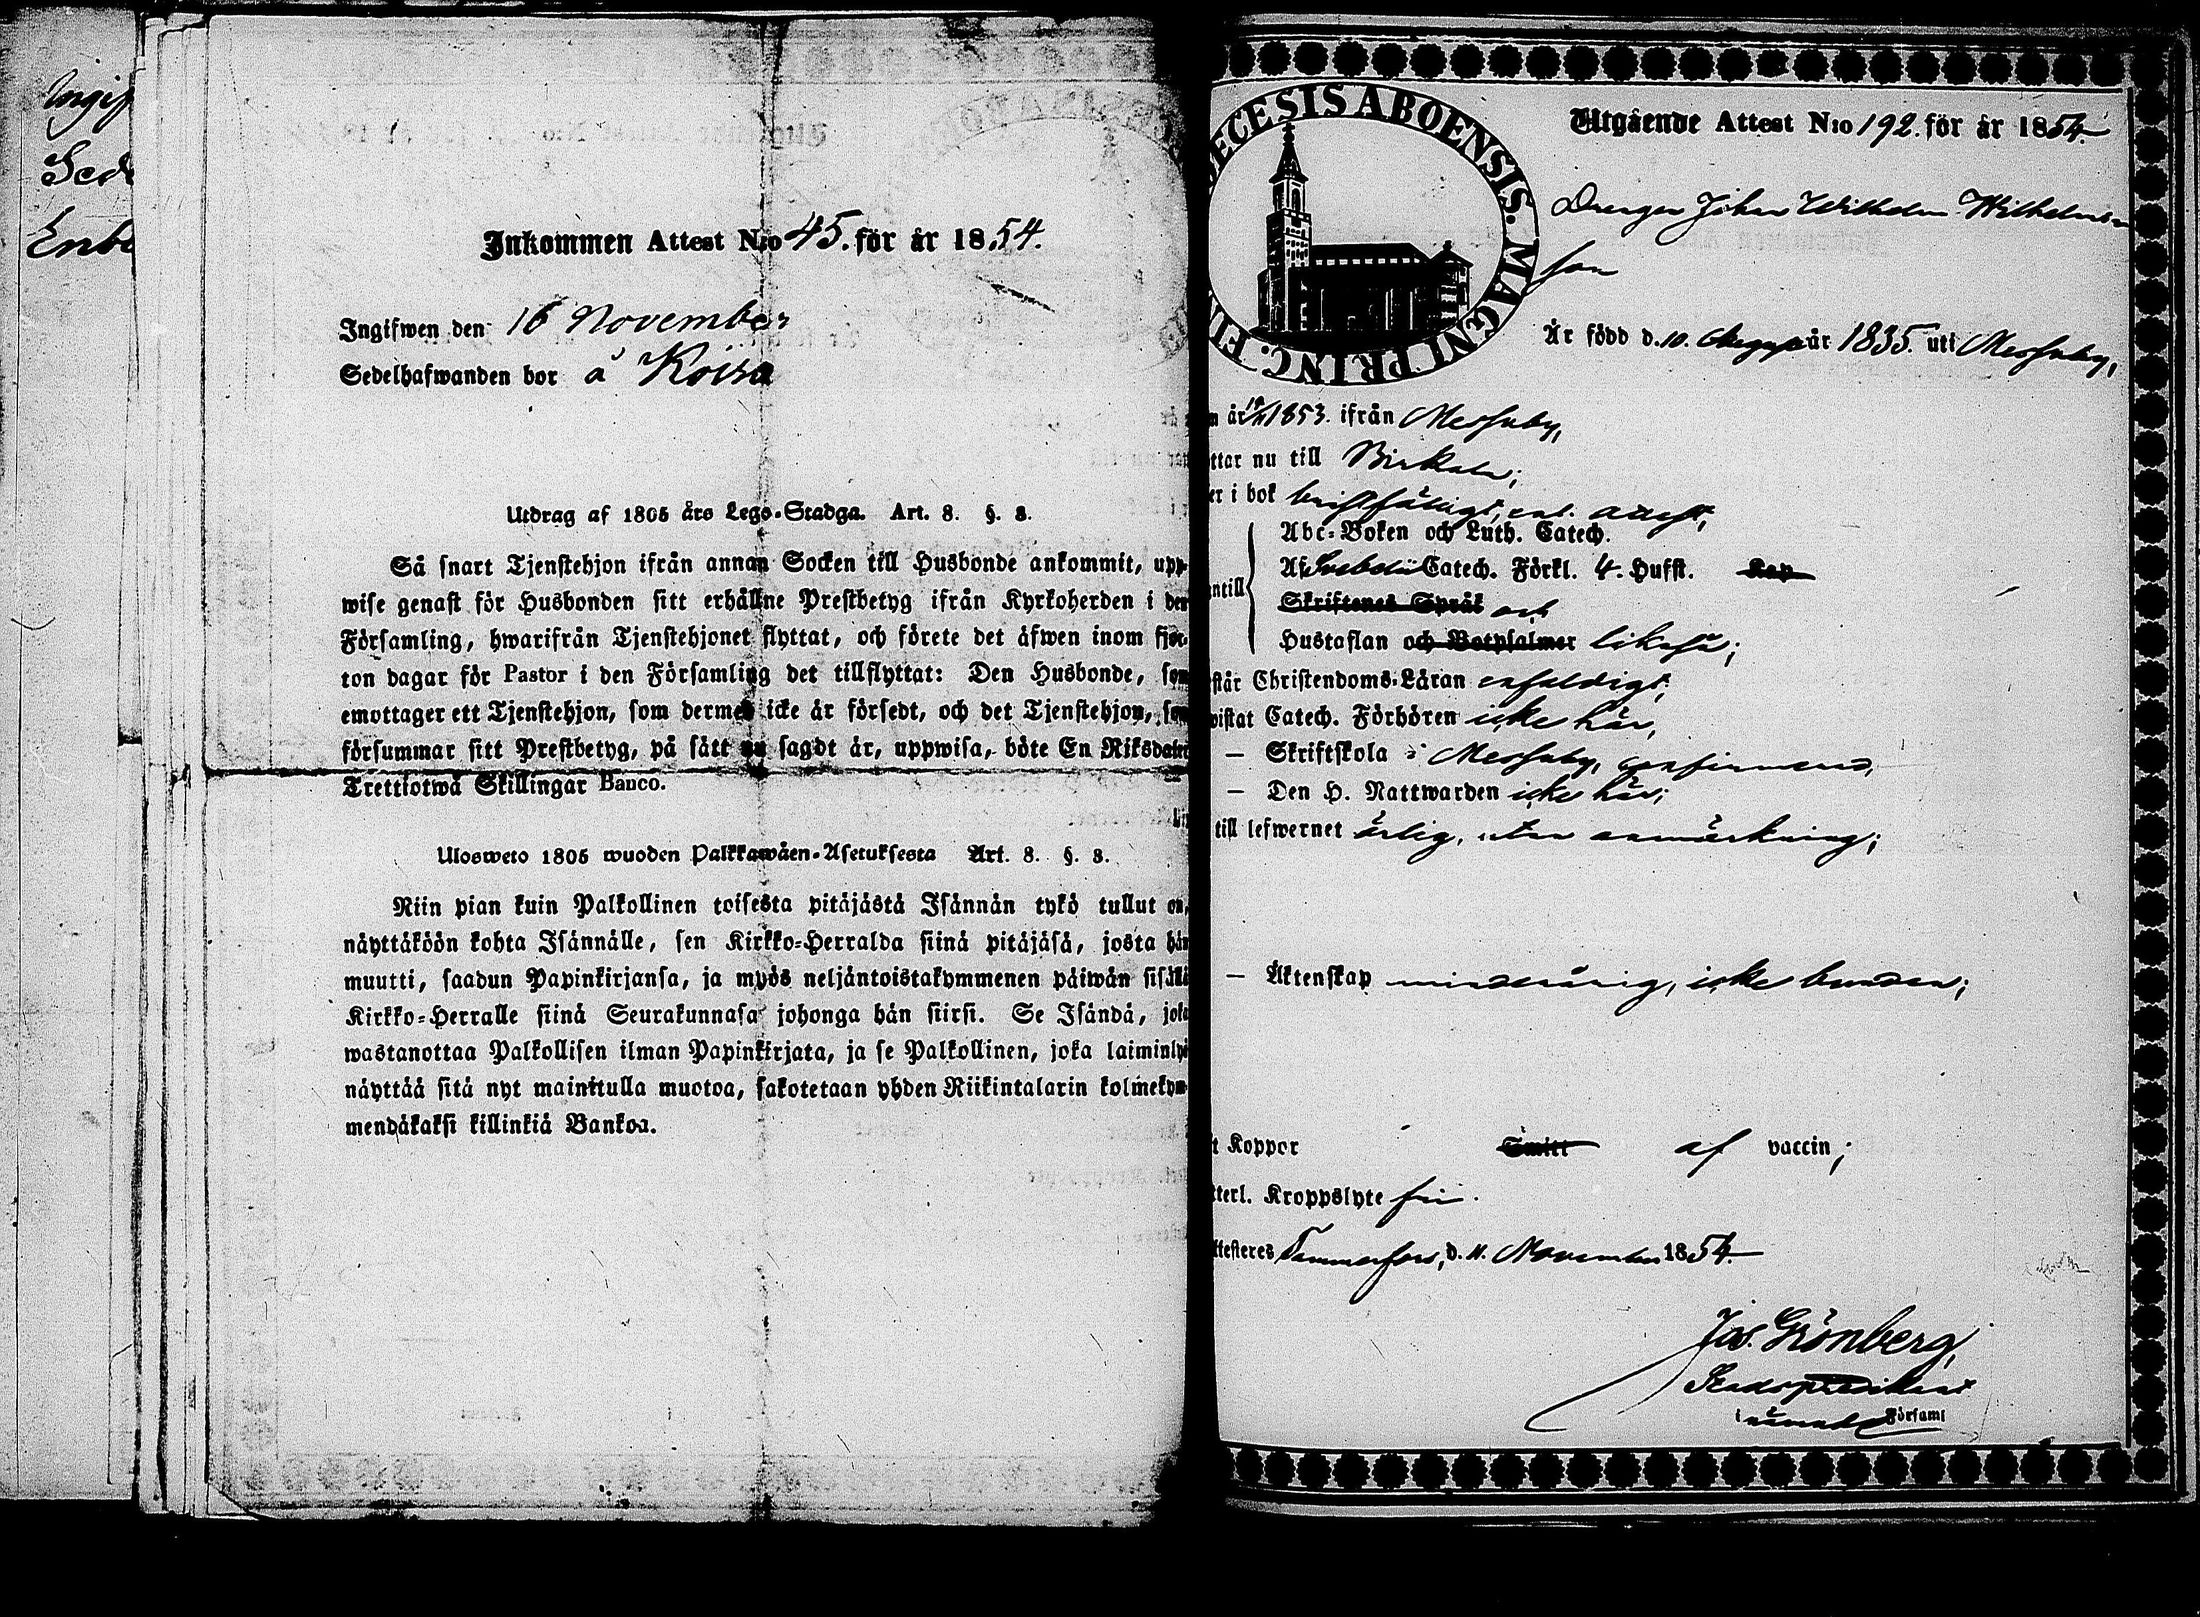 Ingif
Sede
Enbe
Inkommen Attest N:o 45. för år 1854.
Ingifwen den 16 November
Sedelhafwanden bor å Koisa
Utdrag af 1805 års Lego-Stadga. Art. 8. §. 8.
Så snart Tjenstehjon ifrån annan Socken till Husbonde ankommit, upp-
wise genast för Husbonden sitt erhållne Prestbetyg ifrån Kyrkoherden i den
Församling, hwarifrån Tjenstehjonet flyttat, och förete det äfwen inom fjor-
ton dagar för Pastor i den Församling det tillflyttat: Den Husbonde, som
emottager ett Tjenstehjon, som dermed icke är försedt, och det Tjenstehjon, som
försummar sitt Prestbetyg, på sätt nu sagdt är, uppwisa, böte En Riksdaler
Trettiotwå Skillingar Banco.
Ulosweto 1805 wuoden Palkkawäen-Asetuksesta Art. 8. §. 8.
Niin pian kuin Palkollinen toisesta pitäjästä Isännän tykö tullut on,
näyttäköön kohta Isännälle, sen Kirkko-Herralda siinä pitäjäsä, josta hän
muutti, saadun Papinkirjansa, ja myös neljäntoistakymmenen päiwän sisällä
Kirkko-Herralle siinä Seurakunnasa johonga hän siirsi. Se Isändä, joka
wastanottaa Palkollisen ilman Papinkirjata, ja se Palkollinen, joka laiminlyö
näyttää sitä nyt mainitulla muotoa, sakotetaan yhden Riikintalarin kolmekym-
mendäkaksi killinkiä Bankoa.
ECESIS ABOENSIS. MAGNI PRINC. FI
Utgående Attest N:o 192. för år 1854.
Drengen Johan Wilhelm Wilhelms-
son
Är född d. 10. år 1835. uti Messuby,
m år 1853. ifrån Messuby,
ttar nu till Birkala;
er i bok bristfälligt, enl. attest,
Abc-Boken och Luth. Catech.
Af Svebelii Catech. Förkl. 4. Hufst. Kap
ntill
Skriftenes Språk och
Hustaflan och Botpsalmer likaså;
står Christendoms-Läran enfaldigt;
wistat Catech. Förhören icke här,
— Skriftskola i Messuby, confirmerad,
— Den H. Nattwarden icke här;
till lefwernet ärlig, utan anmärkning;
— Äktenskap minderårig, icke bunden;
t Koppor Smitt af vaccin;
tterl. Kroppslyte fri.
ttesteres Tammerfors, d. 11. November 1854.
Jos. Grönberg,
Stadspredikant
i nämnde Församl